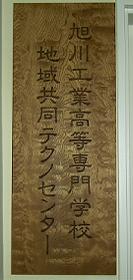 旭川工業高等専門学校
地域共同テクノセンター